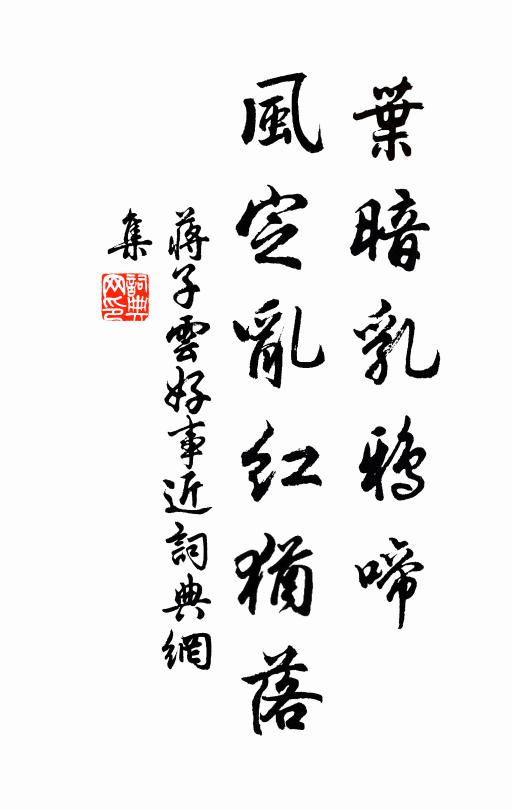 葉暗乳鴉啼
風定亂紅猶落
蔣子雲好事近詞典網
集
詞典
网印